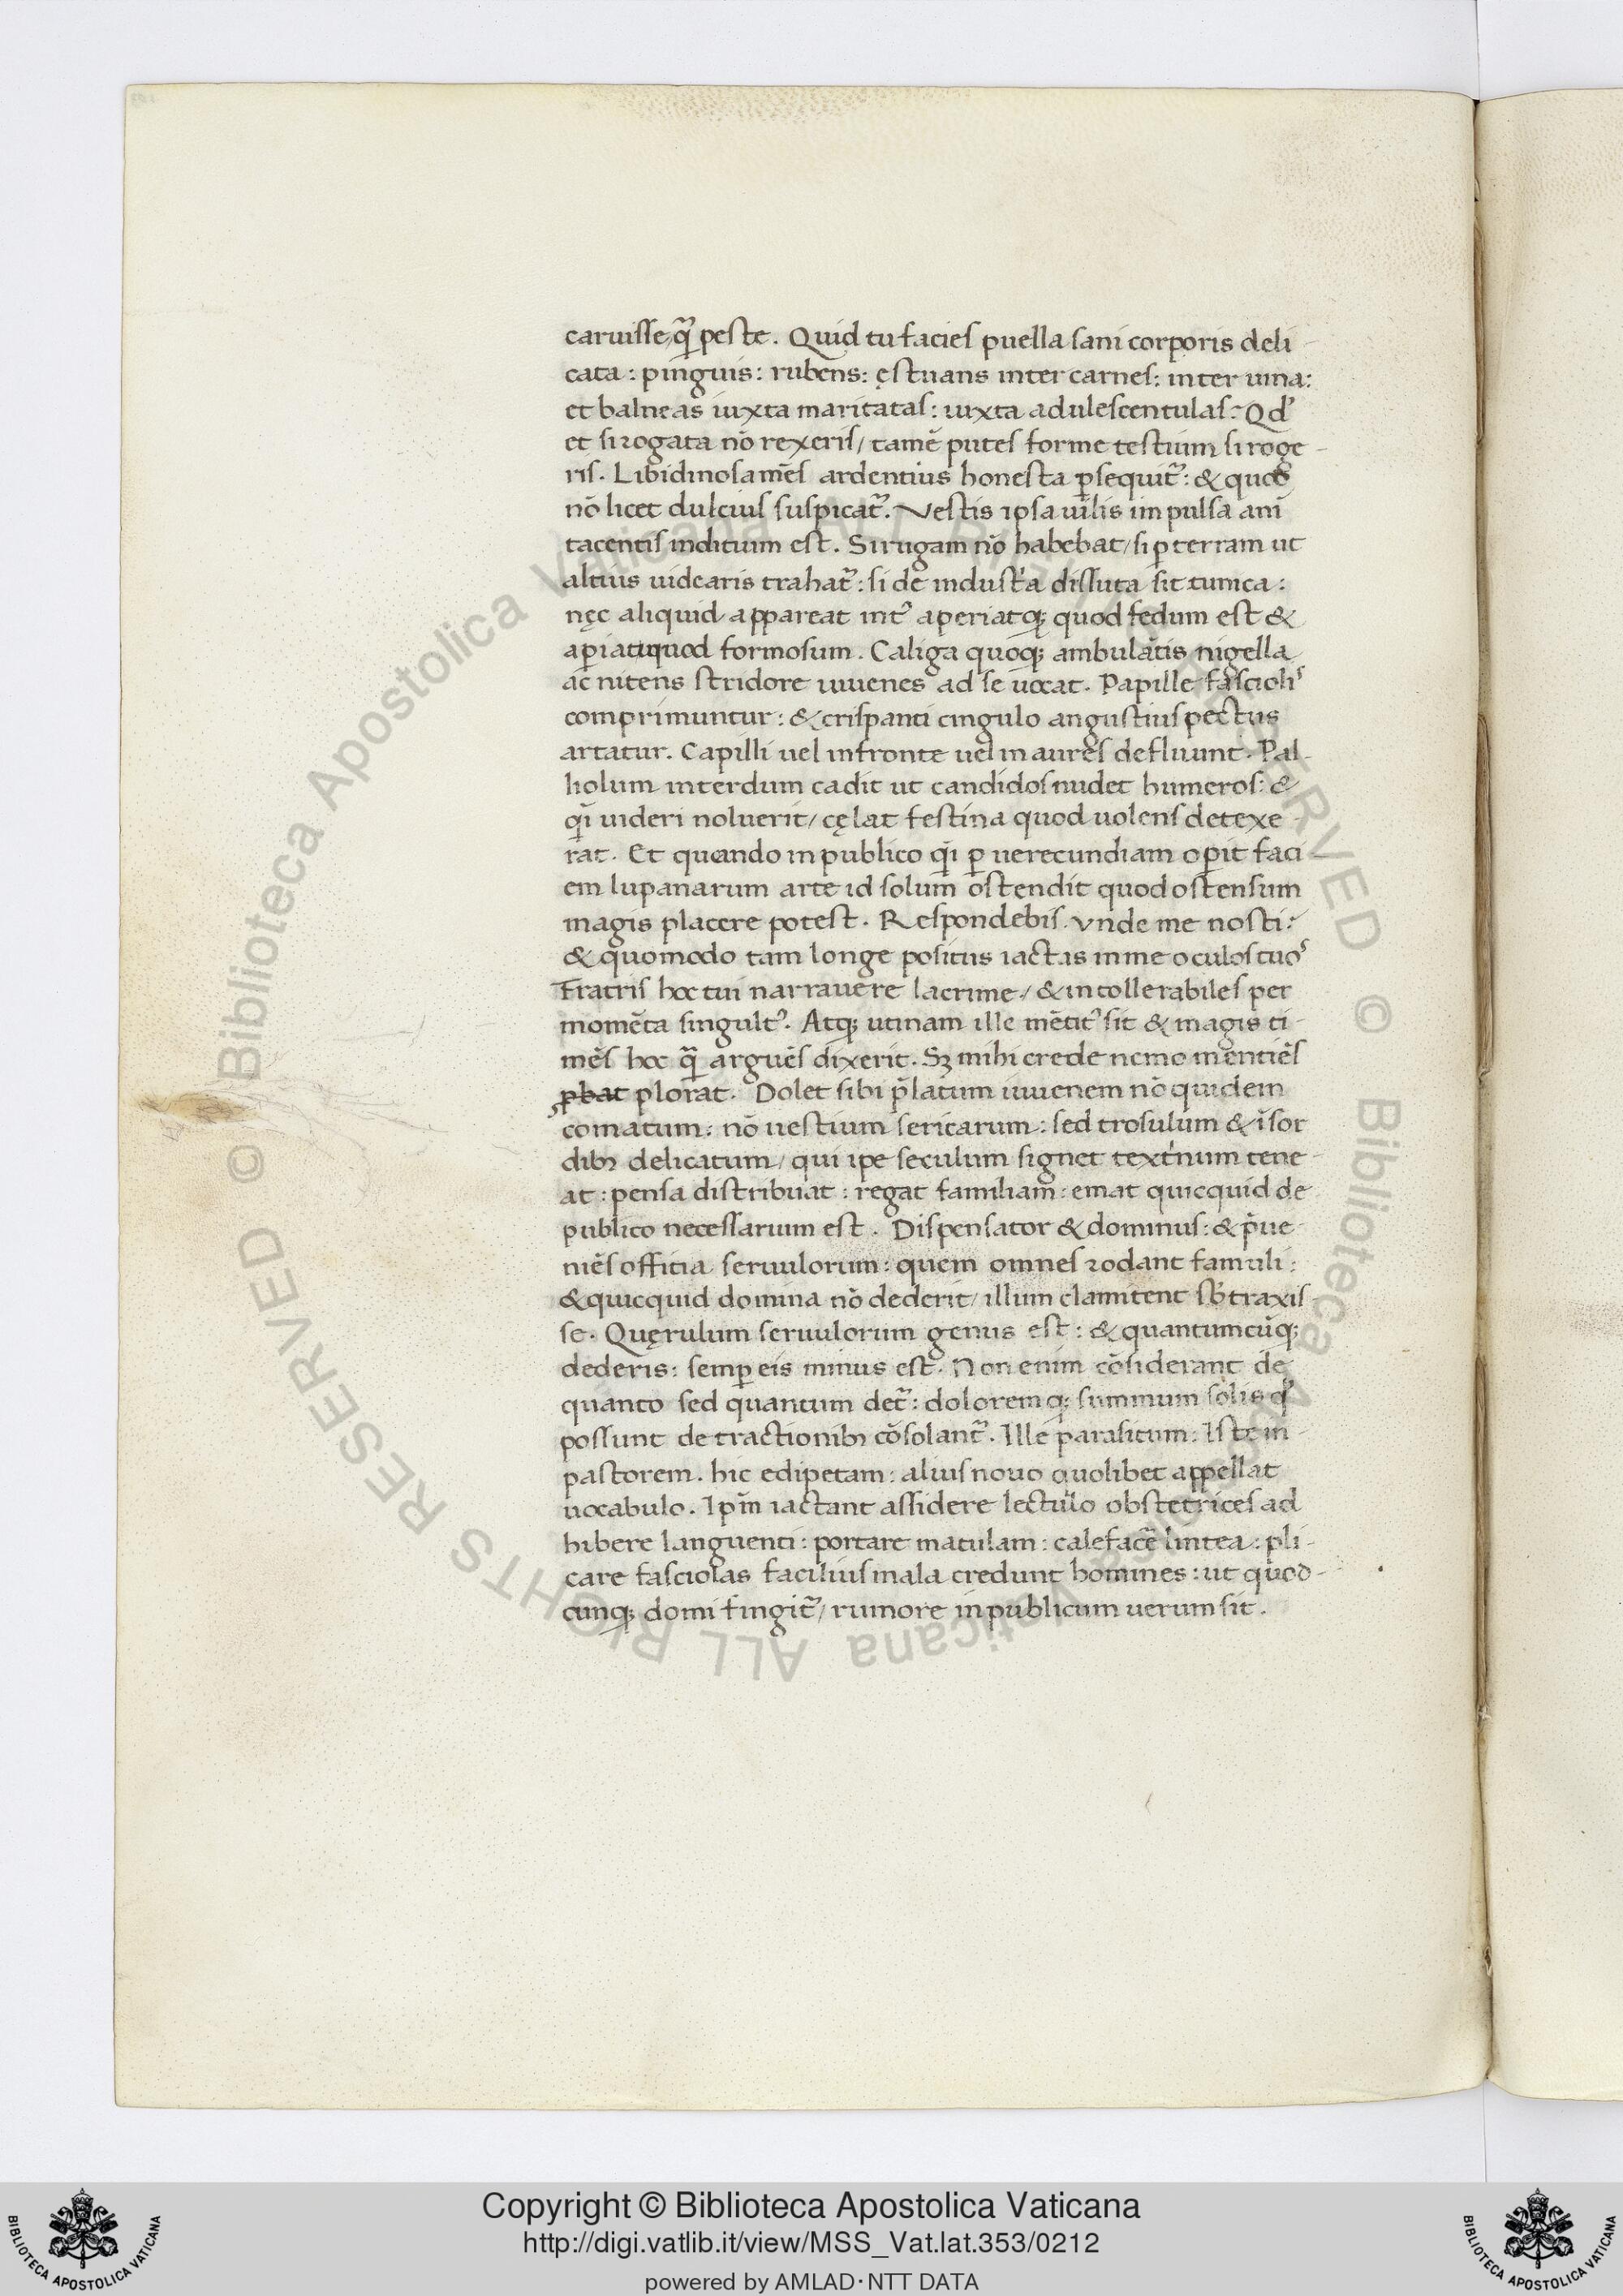 caruisse, qͣ̃ peste. Quid tu facies puella sani corporis deli-
cata: pinguis: rubens: ęstuans inter carnes: inter uina:
et balneas iuxta maritatas: iuxta adulescentulas? Qd'
et si rogata nō rexeris / tamē putes forme testium si roge-
ris. Libidinosa mēs ardentius honesta ꝑsequit᷑: & quod
nō licet dulcius suspicat᷑. Vestis ipsa uilis impulsa anī
tacentis inditium est. Si rugam nō habebat / si ꝑ terram ut
altius uidearis trahat᷑: si de indust'a dissuta sit tunica:
nęc aliquid appareat int᷒ aperiatqꝫ quod fedum est &
aꝑiat quod formosum. Caliga quoqꝫ ambulātis nigella
ac nitens stridore iuuenes ad se uocat. Papille fasciolis
comprimuntur: & crispanti cingulo angustius pectus
artatur. Capilli uel in fronte uel in aures defluunt. Pal-
liolum interdum cadit ut candidos nudet humeros: &
qͣ̃i uideri noluerit / cęlat festina quod uolens detexe-
rat. Et quando in publico qͣ̃i ꝑ uerecundiam oꝑit faci-
em lupanarum arte id solum ostendit quod ostensum
magis placere potest. Respondebis. Vnde me nosti?
& quomodo tam longe positus iactas in me oculos tuos
Fratris hoc tui narrauere lacrime / & intollerabiles per
momēta singult᷒. Atqꝫ utinam ille mētit᷒ sit & magis ti-
mēs hoc qͣ̃ arguēs dixerit. Sꝫ mihi crede nemo mentiēs
ꝓbat plorat. Dolet sibi p̄latum iuuenem nō quidem
comatum: nō uestium sericarum: sed trosulum & ī sor
dibꝫ delicatum / qui ipe seculum signet text'num tene-
at: pensa distribuat: regat familiam: emat quicquid de
publico necessarium est. Dispensator & dominus: & p̄ue-
niēs offitia seruulorum: quem omnes rodant famuli:
& quicquid domina nō dederit / illum clamitent sb̄traxis
se. Quęrulum seruulorum genus est: & quantumcūqꝫ
dederis: semꝑ eis minus est. Non enim cōsiderant de
quanto sed quantum det᷑: doloremqꝫ summum solis q'
possunt detractionibꝫ cōsolant᷑. Ille parasitum: Iste in-
pastorem. hic edipetam: alius nouo quolibet appellat
uocabulo. Ipm̄ iactant assidere lectulo obstetrices ad
hibere languenti: portare matulam: calefacē lintea: pli-
care fasciolas facilius mala credunt homines: ut quod-
cunqꝫ domi fingit᷑ / rumore in publicum uerum sit.
Copyright © Biblioteca Apostolica Vaticana
http://digi.vatlib.it/view/MSS_Vat.lat.353/0212
powered by AMLAD·NTT DATA
BIBLIOTECA APOSTOLICA VATICANA
BIBLIOTECA APOSTOLICA VATICANA
© Biblioteca Apostolica Vaticana ALL RIGHTS RESERVED © Biblioteca Apostolica Vaticana ALL RIGHTS RESERVED